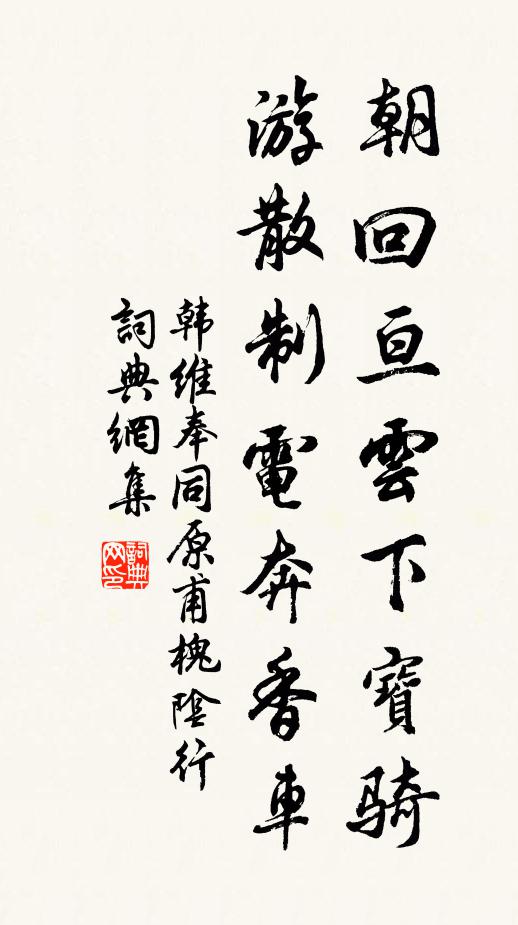 朝回亘雲下寶騎
游散制電奔香車
韩維奉同原甫槐陰行
詞典網集
詞典网印